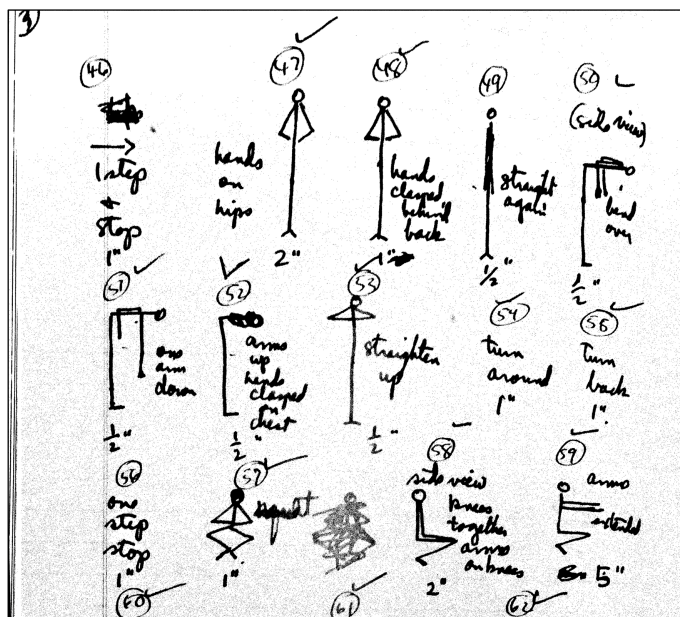 3)
46
→
1 step
+
stop
1"
47
hands
on
hips
2"
48
hands
clasped
behind
back
1"
49
straight
again
1/2"
50
(side view)
bend
over
1/2"
51
one
arm
down
1/2"
52
arms
up
hands
clasped
on
chest
1/2"
53
straighten
up
1/2"
54
turn
around
1"
55
turn
back
1"
56
one
step
stop
1"
57
squat
1"
58
side view
knees
together
arms
on knees
2"
59
arms
extended
5"
60
61
62